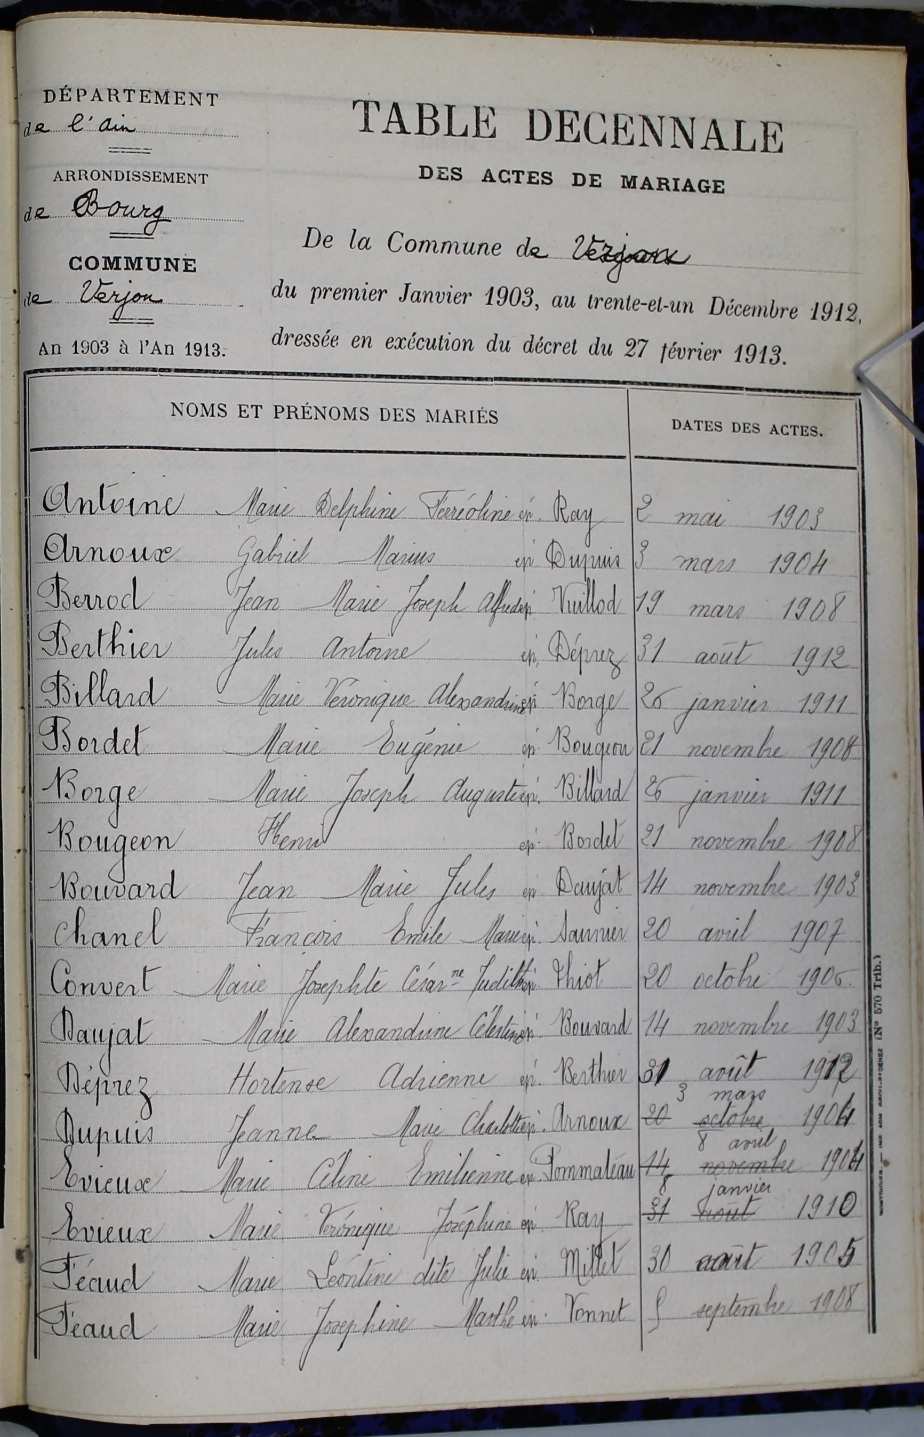 DÉPARTEMENT
de l'Ain
ARRONDISSEMENT
de Bourg
COMMUNE
de Verjon
An 1903 à l'An 1913.
TABLE DECENNALE
DES ACTES DE MARIAGE
De la Commune de Verjon
du premier Janvier 1903, au trente-et-un Décembre 1912,
dressée en exécution du décret du 27 février 1913.
NOMS ET PRÉNOMS DES MARIÉS DATES DES ACTES.
Antoine Marie Delphine Ferréoline ép. Ray 2 mai 1903
Arnoux Gabriel Marius ép. Dupuis 3 mars 1904
Berrod Jean Marie Joseph Alfred ép. Vuillod 19 mars 1908
Berthier Jules Antoine ép. Déprez 31 août 1912
Billard Marie Véronique Alexandrine ép. Borge 26 janvier 1911
Bordet Marie Eugénie ép. Bougeon 21 novembre 1908
Borge Marie Joseph Auguste ép. Billard 26 janvier 1911
Bougeon Henri ép. Bordet 21 novembre 1908
Bouvard Jean Marie Jules ép. Daujat 14 novembre 1903
Chanel François Emile Marie ép. Saunier 20 avril 1907
Convert Marie Josephte Césarne Judith ép. Thiot 20 octobre 1906.
Daujat Marie Alexandrine Célestine ép. Bouvard 14 novembre 1903
Déprez Hortense Adrienne ép. Berthier 31 août 1912
3 mars
Dupuis Jeanne Marie Charlotte ép. Arnoux 20 octobre 1904
8 avril
Evieux Marie Céline Emilienne ép. Pommateau 14 novembre 1904
8 janvier
Evieux Marie Véronique Joséphine ép. Ray 31 août 1910
Féaud Marie Léontine dite Julie ép. Millet 30 août 1905
Féaud Marie Josephine Marthe ép. Vonnet 5 septembre 1908
(No 570 Trib.)